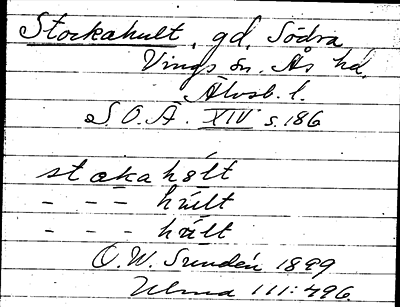 Stockahult, gd, Södra
Vings sn. Ås hd.
Älvsb. l.
S.O.Ä. XIV s. 186
stɔkahəlt
- - - húlt
- - - húlt
O.W. Sundén 1899
Ulma 111:496